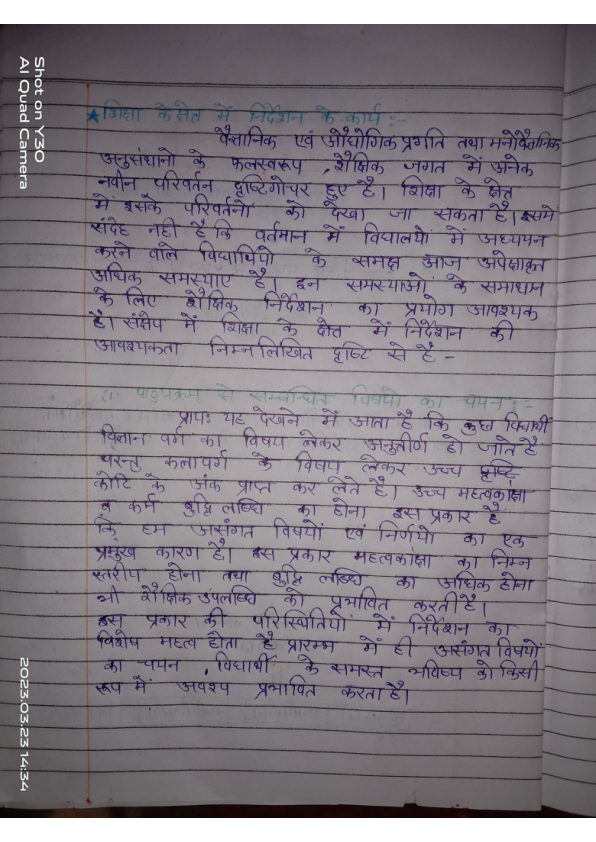 ★ शिक्षा के क्षेत्र में निर्देशन के कार्य :-
वैज्ञानिक एवं औद्योगिक प्रगति तथा मनोवैज्ञानिक
अनुसंधानो के फलस्वरूप , शैक्षिक जगत में अनेक
नवीन परिवर्तन दृष्टिगोचर हुए है। शिक्षा के क्षेत्र
में इसके परिवर्तनो को देखा जा सकता है। इसमे
संदेह नही है कि वर्तमान में विद्यालयों में अध्ययन
करने वाले विद्यार्थियो के समक्ष आज अपेक्षाकृत
अधिक समस्याए है। इन समस्याओं के समाधान
के लिए शैक्षिक निर्देशन का प्रयोग आवश्यक
है। संक्षेप में शिक्षा के क्षेत्र में निर्देशन की
आवश्यकता निम्नलिखित दृष्टि से है -
(1) पाठ्यक्रम से सम्बन्धित विषयो का चयन :-
प्रायः यह देखने में आता है कि कुछ विद्यार्थी
विज्ञान वर्ग का विषय लेकर अनुतीर्ण हो जाते है
परन्तु कलावर्ग के विषय लेकर उच्च दृष्टि
कोटि के अंक प्राप्त कर लेते है। उच्च महत्वकांक्षा
व कम बुद्धि लब्धि का होना इस प्रकार है
कि हम असंगत विषयों एवं निर्णयो का एक
प्रमुख कारण है। इस प्रकार महत्वकांक्षा का निम्न
स्तरीय होना तथा बुद्धि लब्धि का अधिक होना
भी शैक्षिक उपलब्धि को प्रभावित करती है।
इस प्रकार की परिस्थितियों में निर्देशन का
विशेष महत्व होता है प्रारम्भ में ही असंगत विषयों
का चयन , विद्यार्थी के समस्त भविष्य को किसी
रूप में अवश्य प्रभावित करता है।
Shot on Y30
AI Quad Camera
2023.03.23 14:34